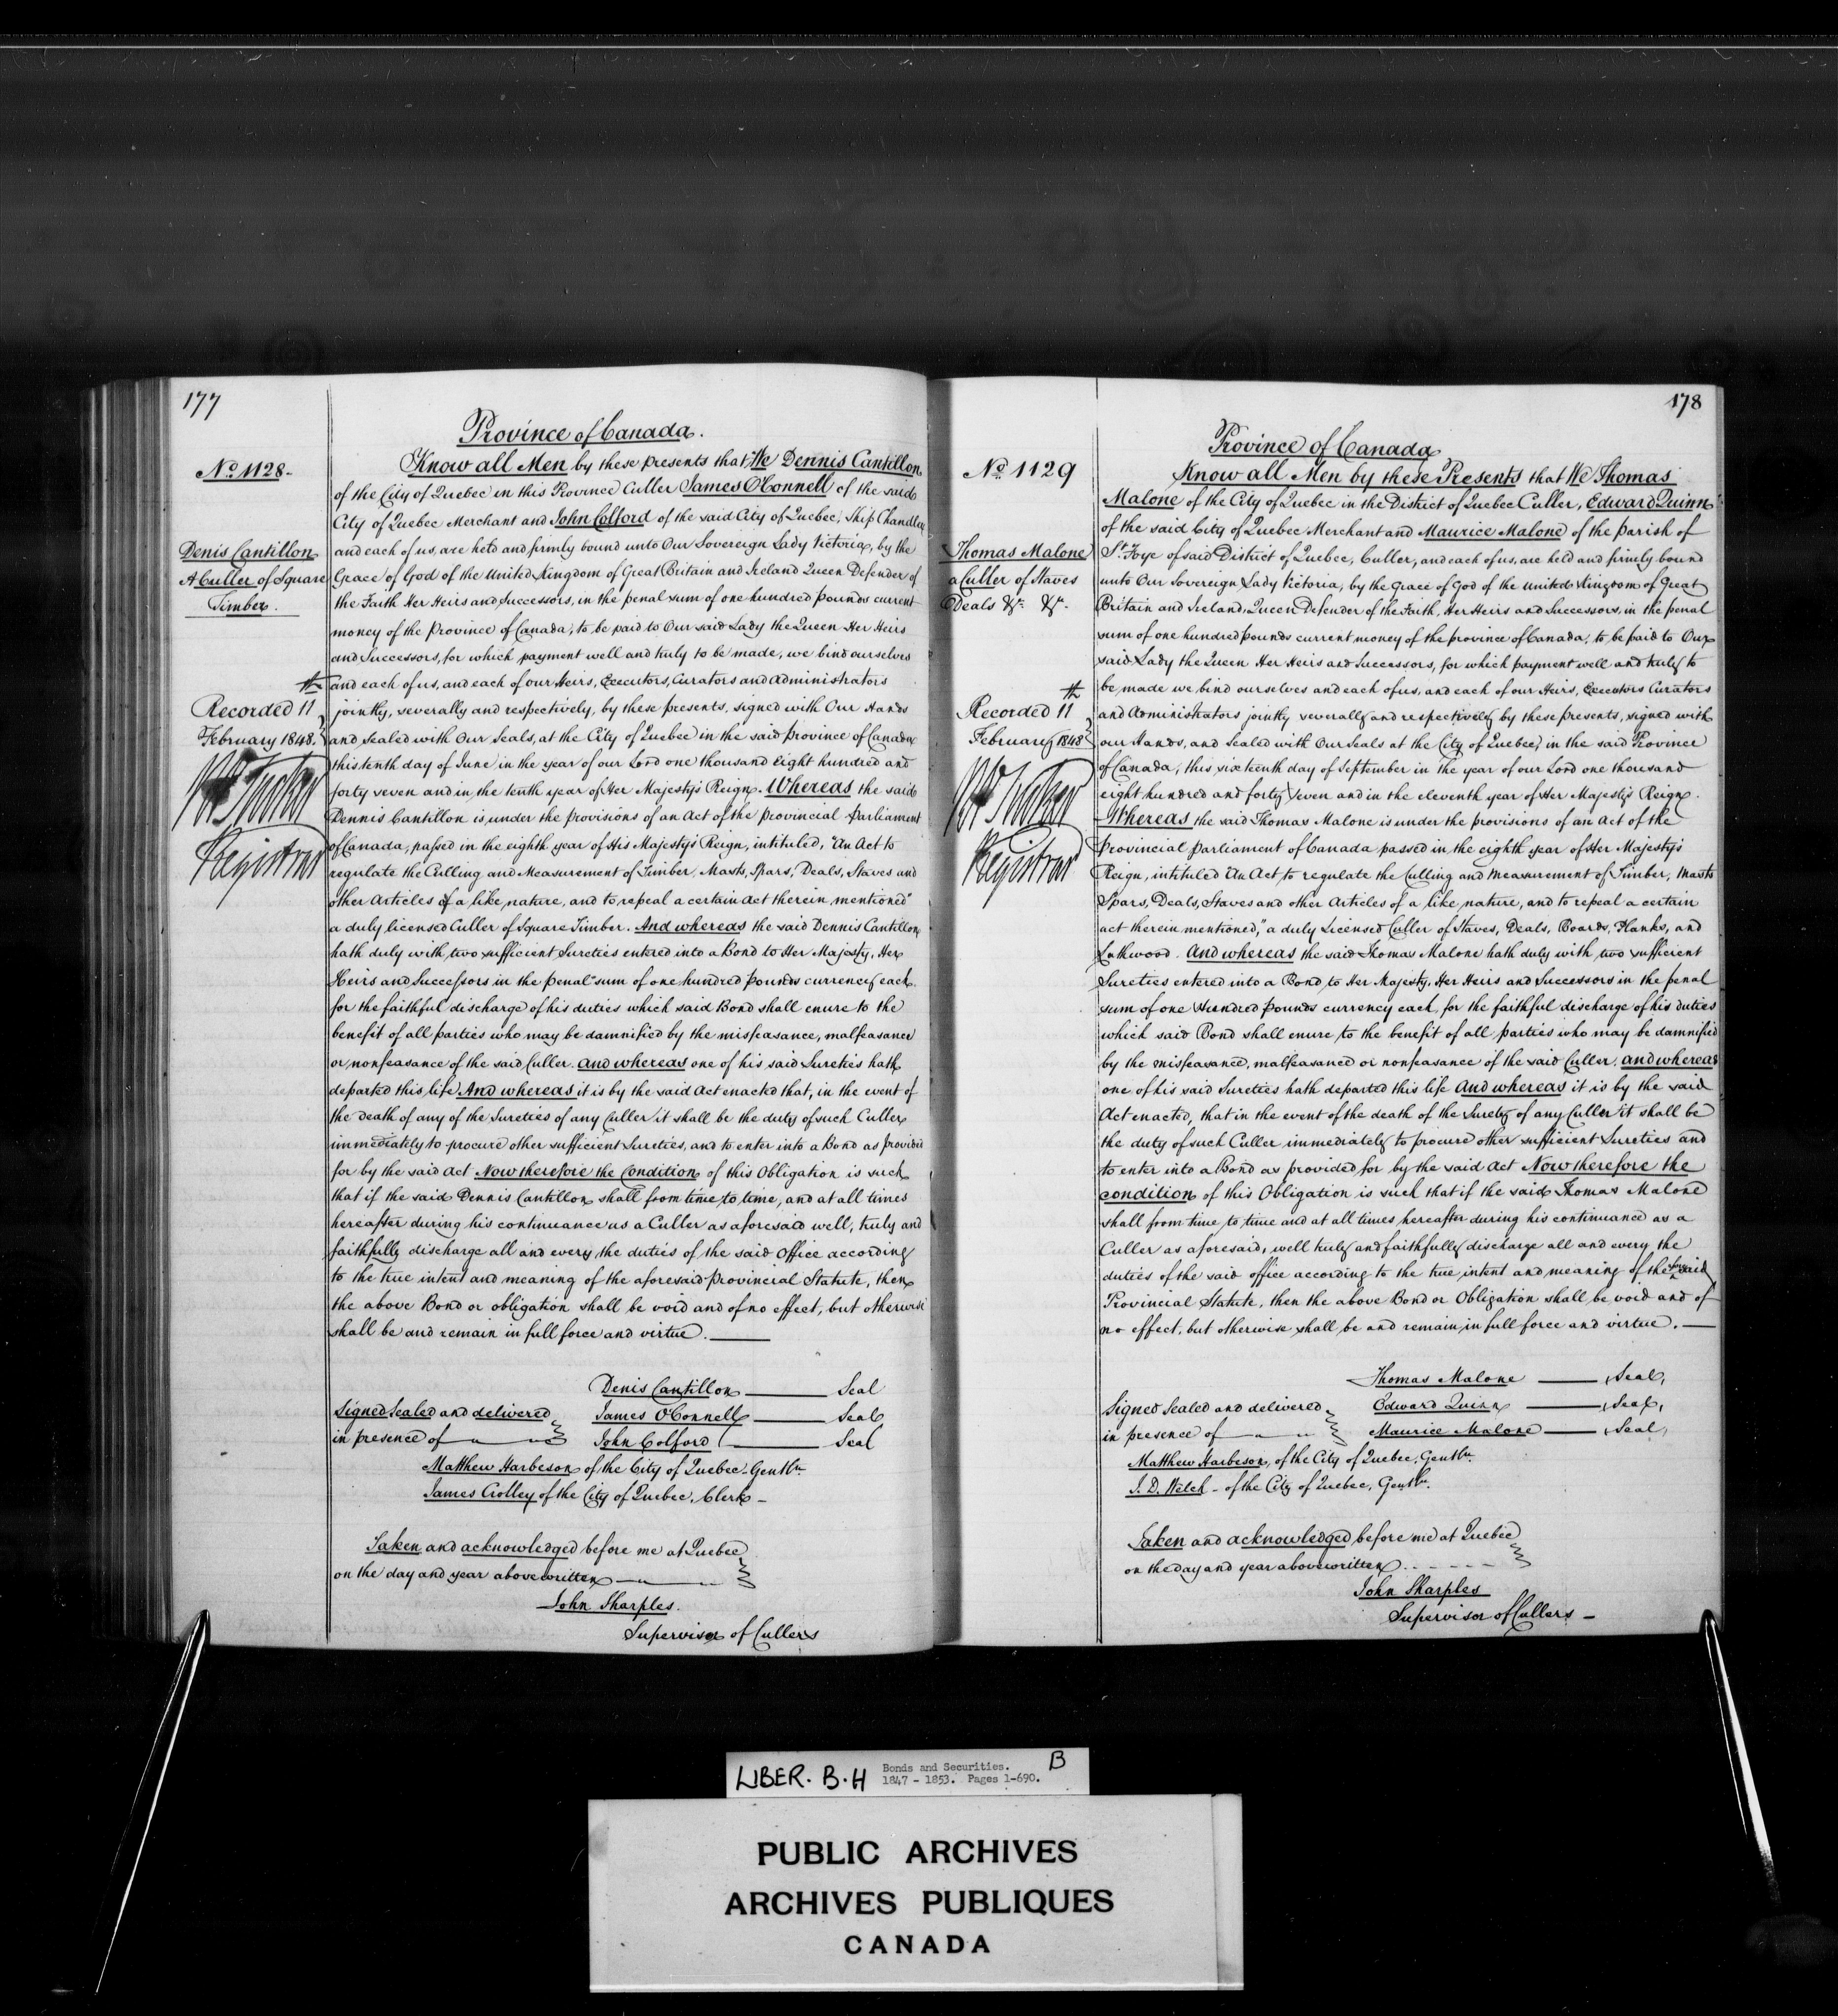 177
Province of Canada.
No. 1128-
Know all Men by these presents that We Dennis Cantillon
of the City of Quebec in this Province Culler James O'Connell of the said
City of Quebec Merchant and John Colford of the said City of Quebec, Ship Chandler
Denis Cantillon
A Culler of Square
Timber.
and each of us, are held and firmly bound unto Our Sovereign Lady Victoria, by the
Grace of God of the United Kingdom of Great Britain and Ireland Queen Defender of
the Faith Her Heirs and Successors, in the penal sum of one hundred pounds current
money of the Province of Canada, to be paid to Our said Lady the Queen Her Heirs
and Successors, for which payment well and truly to be made, we bind ourselves
and each of us, and each of our Heirs, Executors, Curators and Administrators
Recorded 11th
February 1848.
Registrar
jointly, severally and respectively, by these presents, signed with Our Hands
and Sealed with Our Seals, at the City of Quebec in the said province of Canada
this tenth day of June in the year of our Lord one thousand eight hundred and
forty seven and in the tenth year of Her Majesty's Reign. Whereas the said
Dennis Cantillon is under the provisions of an Act of the Provincial Parliament
of Canada, passed in the eighth year of His Majesty's Reign, intituled, "An Act to
regulate the Culling and Measurement of Timber, Masts, Spars, Deals, Staves and
other Articles of a like nature, and to repeal a certain Act therein mentioned"
a duly licensed Culler of Square Timber. And whereas the said Dennis Cantillon
hath duly with two sufficient Sureties entered into a Bond to Her Majesty, Her
Heirs and Successors in the penal sum of one hundred pounds currency each
for the faithful discharge of his duties which said Bond shall enure to the
benefit of all parties who may be damnified by the misfeasance, malfeasance
or nonfeasance of the said Culler. And whereas one of his said Sureties hath
departed this life And whereas it is by the said Act enacted that, in the event of
the death of any of the Sureties of any Culler it shall be the duty of such Culler
immediately to procure other sufficient Sureties, and to enter into a Bond as provided
for by the said Act Now therefore the Condition of this Obligation is such
that if the said Dennis Cantillon shall from time to time, and at all times
hereafter during his continuance as a Culler as aforesaid well, truly and
faithfully discharge all and every the duties of the said Office according
to the true intent and meaning of the aforesaid Provincial Statute, then
the above Bond or obligation shall be void and of no effect, but otherwise
shall be and remain in full force and virtue.
Denis Cantillon Seal
Signed Sealed and delivered James O'Connell Seal
in presence of John Colford Seal
Matthew Harbeson of the City of Quebec Gentln.
James Crolley of the City of Quebec, Clerk -
Taken and acknowledged before me at Quebec
on the day and year above written
John Sharples.
Supervisor of Cullers
178
Province of Canada
No. 1129
Know all Men by these Presents that We Thomas
Malone of the City of Quebec in the District of Quebec Culler, Edward Quinn
of the said City of Quebec Merchant and Maurice Malone of the Parish of
Thomas Malone
a Culler of Staves
Deals &c. &c.
St. Foye of said District of Quebec, Culler, and each of us, are held and firmly bound
unto Our Sovereign Lady Victoria, by the Grace of God of the United Kingdom of Great
Britain and Ireland, Queen Defender of the Faith, Her Heirs and Successors, in the penal
sum of one hundred pounds current money of the province of Canada, to be paid to Our
said Lady the Queen Her Heirs and Successors, for which payment well and truly to
be made we bind ourselves and each of us, and each of our Heirs, Executors Curators
Recorded 11th
February 1848
Registrar
and Administrators jointly severally and respectively by these presents, signed with
our Hands, and Sealed with Our Seals at the City of Quebec, in the said Province
of Canada, this sixteenth day of September in the year of our Lord one thousand
eight hundred and forty seven and in the eleventh year of Her Majesty's Reign.
Whereas the said Thomas Malone is under the provisions of an Act of the
Provincial Parliament of Canada passed in the eighth year of Her Majesty's
Reign, intituled "An Act to regulate the Culling and Measurement of Timber, Masts
Spars, Deals, Staves and other Articles of a like nature, and to repeal a certain
act therein mentioned," a duly Licensed Culler of Staves, Deals, Boards, Planks, and
Lathwood. And whereas the said Thomas Malone hath duly with two sufficient
Sureties entered into a Bond to Her Majesty, Her Heirs and Successors in the penal
sum of one Hundred pounds currency each, for the faithful discharge of his duties
which said Bond shall enure to the benefit of all parties who may be damnified
by the misfeasance, malfeasance or nonfeasance of the said Culler. And whereas
one of his said Sureties hath departed this life And whereas it is by the said
Act enacted, that in the event of the death of the Surety of any Culler it shall be
the duty of such Culler immediately to procure other sufficient Sureties and
to enter into a Bond as provided for by the said Act Now therefore the
condition of this Obligation is such that if the said Thomas Malone
shall from time to time and at all times hereafter during his continuance as a
Culler as aforesaid, well truly and faithfully discharge all and every the
duties of the said office according to the true intent and meaning of the aforesaid
Provincial Statute, then the above Bond or Obligation shall be void and of
no effect, but otherwise shall be and remain in full force and virtue.
Thomas Malone Seal,
Signed Sealed and delivered Edward Quinn Seal,
in presence of Maurice Malone Seal,
Matthew Harbeson, of the City of Quebec, Gentln.
J. D. Welch - of the City of Quebec, Gentln.
Taken and acknowledged before me at Quebec
on the day and year above written
John Sharples
Supervisor of Cullers -
LIBER. B.H Bonds and Securities. B
1847 - 1853. Pages 1-690.
PUBLIC ARCHIVES
ARCHIVES PUBLIQUES
CANADA